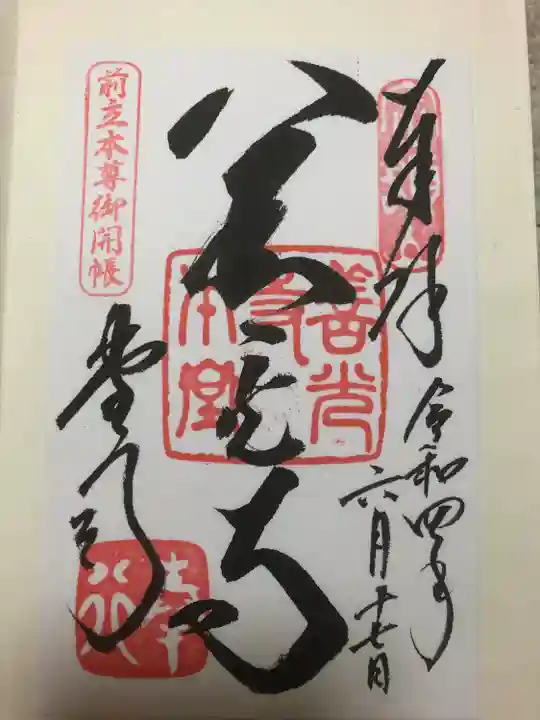 奉拝
令和四年
六月十七日
善光寺
善光寺本堂
堂行
前立本尊御開帳
奉行